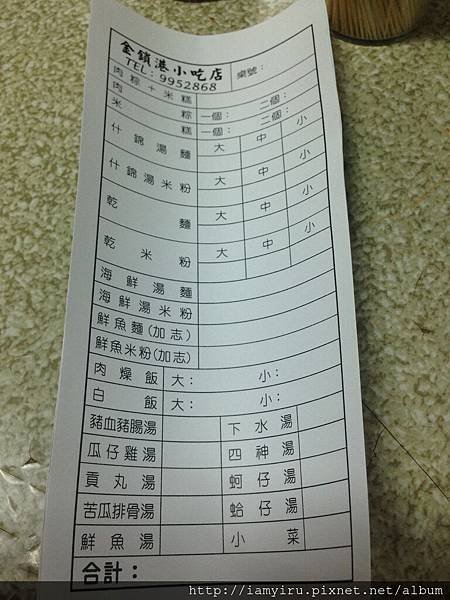 金鎖港小吃店
TEL:9952868 桌號:
肉粽+米糕
肉粽 一個: 二個:
米糕 一個: 二個:
什錦湯麵 大 中 小
什錦湯米粉 大 中 小
乾麵 大 中 小
乾米粉 大 中 小
海鮮湯麵
海鮮湯米粉
鮮魚麵(加志)
鮮魚米粉(加志)
肉燥飯 大: 小:
白飯 大: 小:
豬血豬腸湯 下水湯
瓜仔雞湯 四神湯
貢丸湯 蚵仔湯
苦瓜排骨湯 蛤仔湯
鮮魚湯 小菜
合計:
http://iamyiru.pixnet.net/album